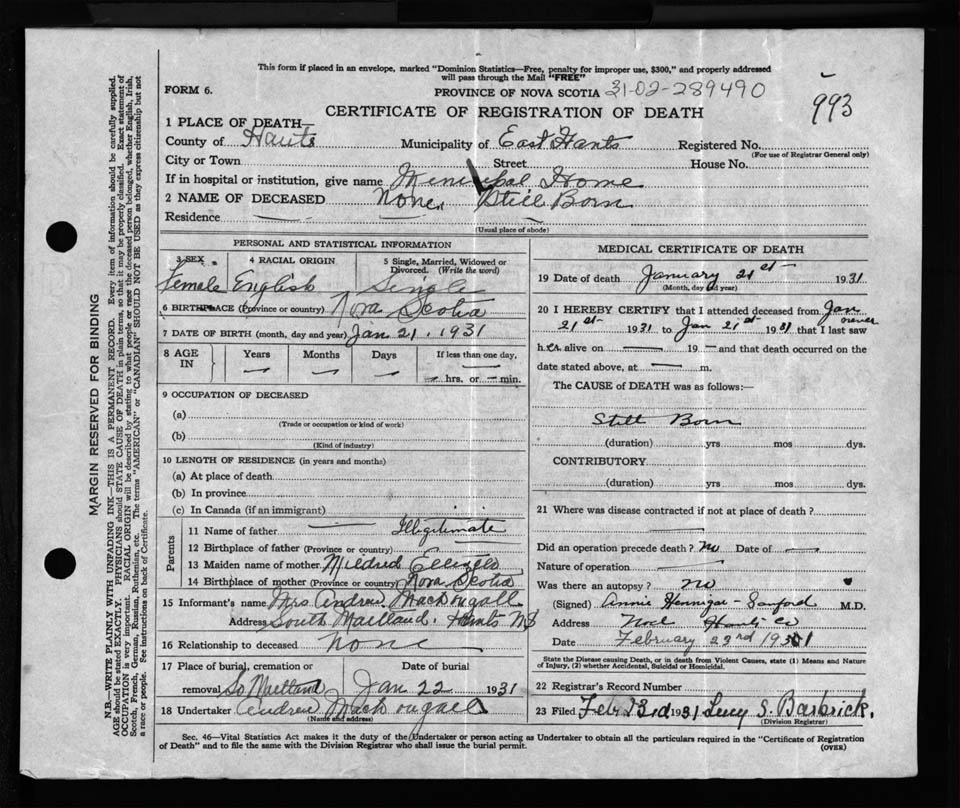 This form if placed in an envelope, marked "Dominion Statistics—Free, penalty for improper use, $300," and properly addressed
will pass through the Mail "FREE"
FORM 6.
PROVINCE OF NOVA SCOTIA 31-02-289490
993
CERTIFICATE OF REGISTRATION OF DEATH
1 PLACE OF DEATH—
County of Hants Municipality of East Hants Registered No.
(For use of Registrar General only)
City or Town Street House No.
If in hospital or institution, give name Municipal Home
2 NAME OF DECEASED None, Still Born
Residence
(Usual place of abode)
PERSONAL AND STATISTICAL INFORMATION
3 SEX 4 RACIAL ORIGIN 5 Single, Married, Widowed or
Divorced. (Write the word)
Female English Single
6 BIRTHPLACE (Province or country) Nova Scotia
7 DATE OF BIRTH (month, day and year) Jan 21, 1931
8 AGE IN Years Months Days If less than one day,
hrs. or min.
9 OCCUPATION OF DECEASED
(a)
(Trade or occupation or kind of work)
(b)
(Kind of industry)
10 LENGTH OF RESIDENCE (in years and months)
(a) At place of death
(b) In province
(c) In Canada (if an immigrant)
Parents
11 Name of father Illigitimate
12 Birthplace of father (Province or country)
13 Maiden name of mother Mildred
14 Birthplace of mother (Province or country) Nova Scotia
15 Informant's name Mrs Andrew MacDougall
Address South Maitland, Hants NS
16 Relationship to deceased None
17 Place of burial, cremation or Date of burial
removal So Maitland Jan 22 1931
18 Undertaker Andrew MacDougall
(Name and address)
MEDICAL CERTIFICATE OF DEATH
19 Date of death January 21st 1931
(Month, day and year)
20 I HEREBY CERTIFY that I attended deceased from Jan
21st 1931 to Jan 21st 1931 that I last saw
never
h er alive on 19 and that death occurred on the
date stated above, at m.
The CAUSE of DEATH was as follows:—
Still Born
(duration) yrs mos dys.
CONTRIBUTORY
(duration) yrs mos dys.
21 Where was disease contracted if not at place of death?
Did an operation precede death? No Date of
Nature of operation
Was there an autopsy? no
(Signed) Annie Hennigar-Sanford M.D.
Address Noel Hants Co
Date February 23rd 1931
State the Disease causing Death, or in death from Violent Causes, state (1) Means and Nature
of Injury, (2) whether Accidental, Suicidal or Homicidal.
22 Registrar's Record Number
23 Filed Feb. 23rd 1931 Lucy S. Barbrick.
(Division Registrar)
Sec. 46—Vital Statistics Act makes it the duty of the Undertaker or person acting as Undertaker to obtain all the particulars required in the "Certificate of Registration
of Death" and to file the same with the Division Registrar who shall issue the burial permit.
(OVER)
MARGIN RESERVED FOR BINDING
N.B.—WRITE PLAINLY WITH UNFADING INK—THIS IS A PERMANENT RECORD. Every item of information should be carefully supplied.
AGE should be stated EXACTLY. PHYSICIANS should STATE CAUSE OF DEATH in plain terms, so that it may be properly classified. Exact statement of
OCCUPATION is very important. RACIAL ORIGIN will be described by stating to what people or race the deceased person belonged, whether English, Irish
Scotch, French, German, Russian, Ruthenian, etc. The terms "AMERICAN" or "CANADIAN" SHOULD NOT BE USED as they express citizenship but not
a race or people. See instructions on back of Certificate.